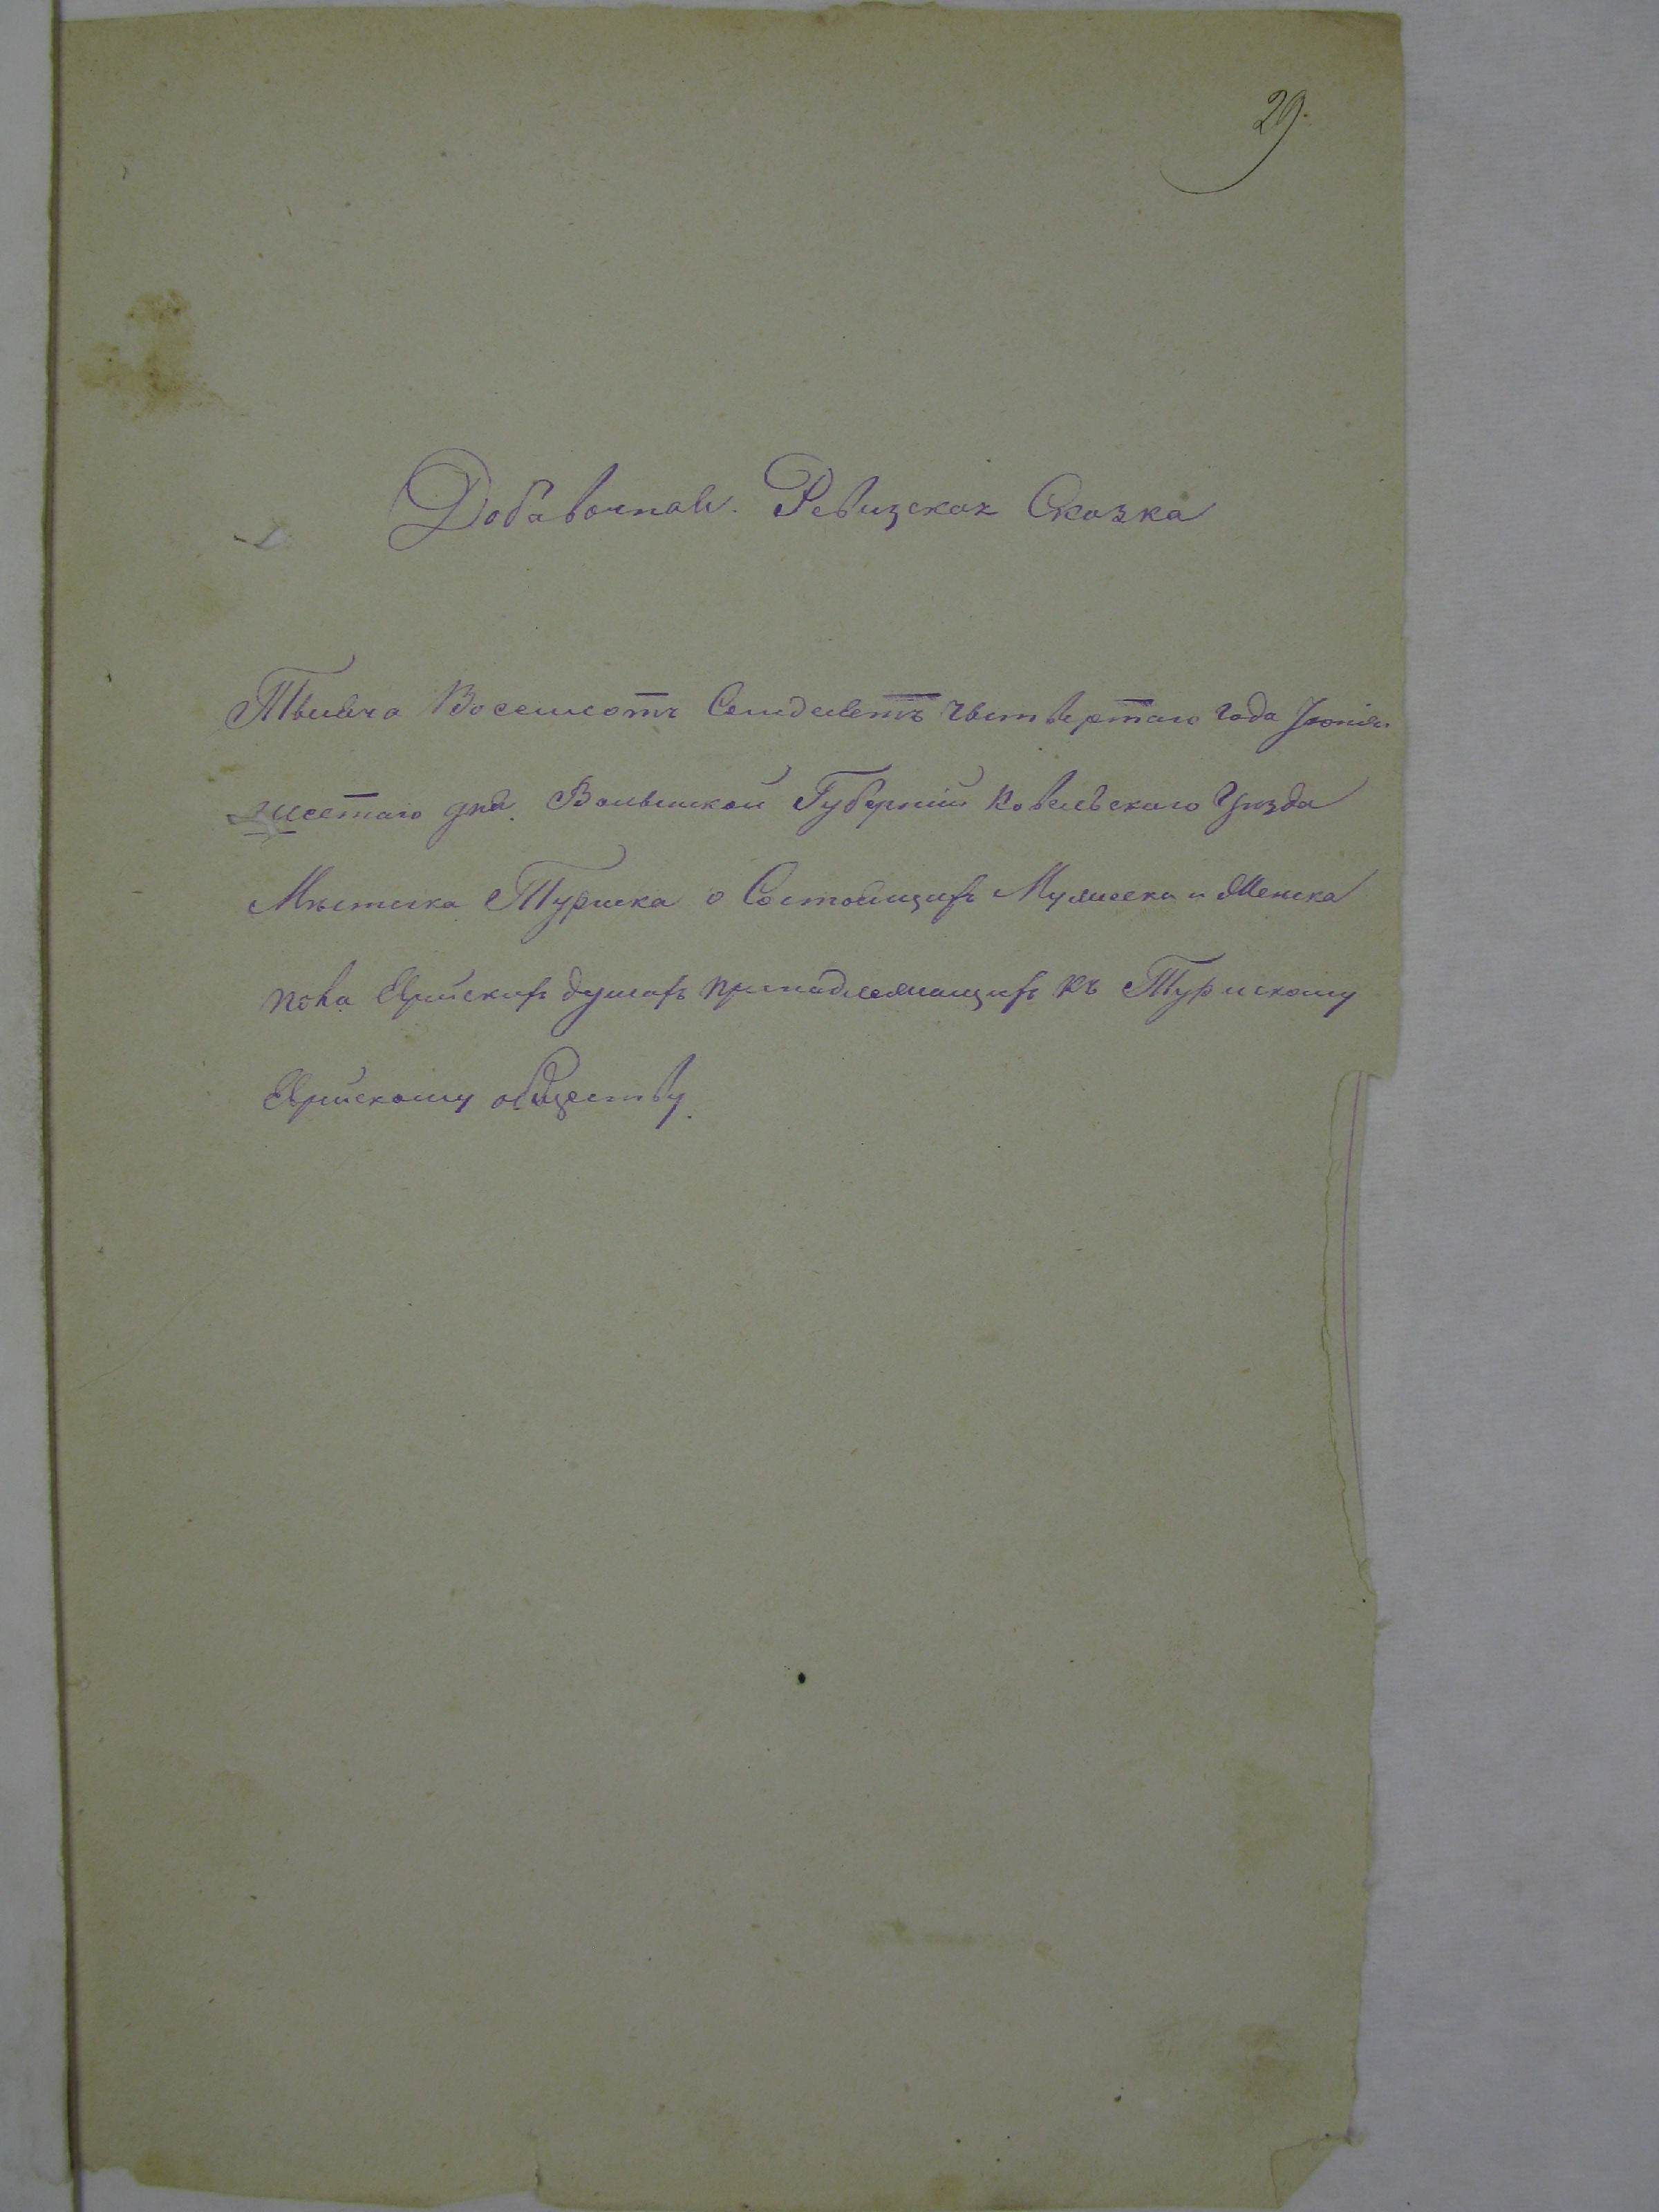 29.
Добавочная. Ревизская Сказка
Тысяча Восемсотъ Семдесетъ Четвертаго года Іюня
шестаго дня. Волынской Губерніи Ковельского Уѣзда
Мѣстечка Турийска о Состоящихъ Мужеска и Женска
пола Еврейскихъ душахъ принадлежащихъ къ Турискому
Еврейскому обществу.